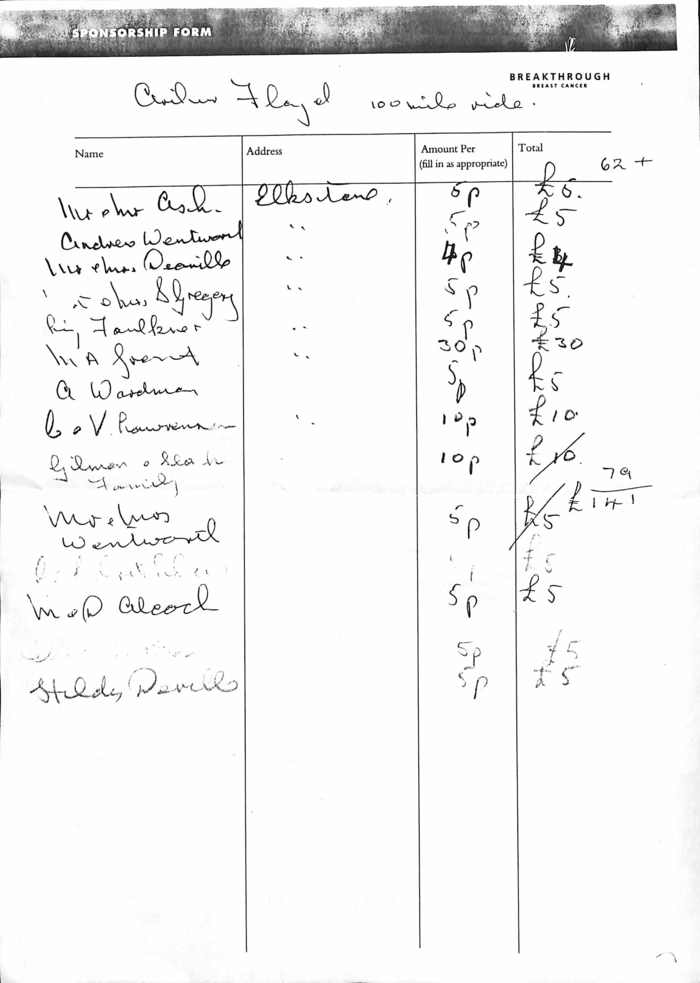 SPONSORSHIP FORM
BREAKTHROUGH
BREAST CANCER
Floyd 100 mile ride.
Name Address Amount Per Total
(fill in as appropriate)
62 +
Mr & Mrs Ash. Elkstone. 5p £5.
Andrew Wentworth " 5p £5
Mr & Mrs Deaville " 4p £4
& Mrs S Gregory " 5p £5.
Faulkner " 5p £5
M A Grant " 30p £30
A Wardman 5p £5
C & V Lawrenson " 10p £10.
Gilman & Leah 10p £10.
Family
79
£141
Mr & Mrs 5p £5
Wentworth
£5
M & D Alcock 5p £5
5p £5
Hilda Deville 5p £5